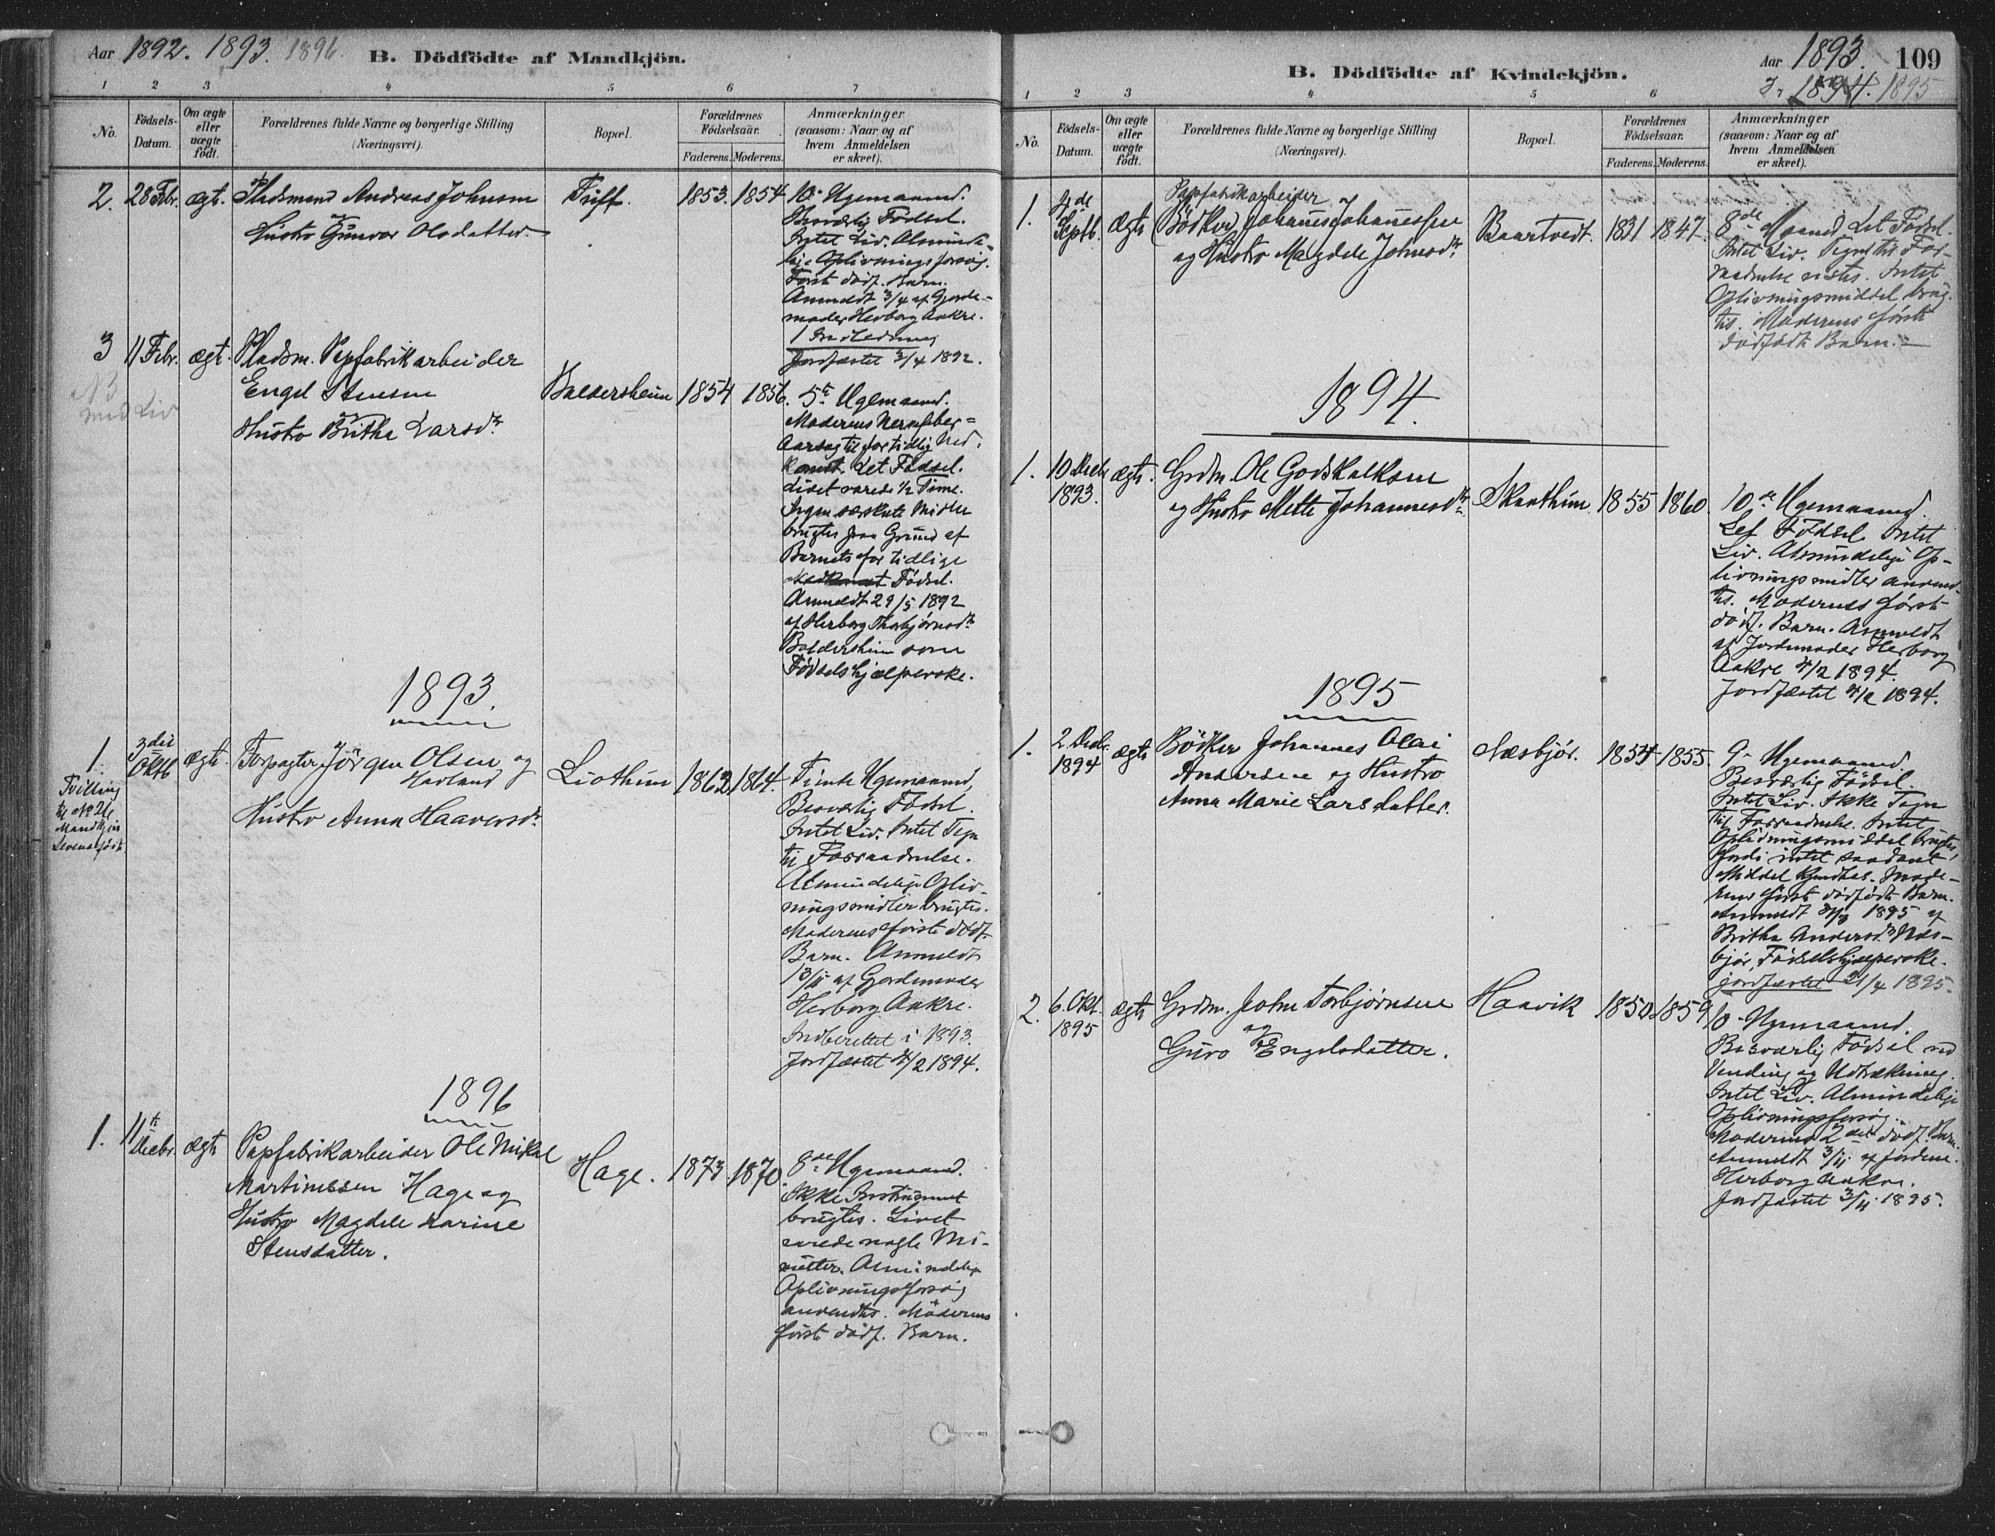 Aar 1892. 1893. 1896.
B. Dödfödte af Mandkjön.
1 2 3 4 5 6 7
No.
Födsels-Datum.
Om ægte eller uægte födt.
Forældrenes fulde Navne og borgerlige Stilling
(Næringsvei).
Bopæl.
Forældrenes Födselsaar.
Faderens. Moderens.
Anmærkninger
(saasom: Naar og af
hvem Anmeldelsen
er skeet).
2. 28 Febr. ægt. Pladsmand Andreas Johnsen
Hustro Gunvor Olsdatter
Tuff. 1853. 1854
10 Ugemaaned.
Besværlig Fødsel.
Intet Liv. Alminde-
lige Oplivningsforsøg.
Først dødf. Barn.
Anmeldt 3/4 af Gjorde-
moder Herborg Aakre.
Jordfæstet 3/4 1892.
3 11 Febr. ægt. Pladsm. Papfabrikarbeider
Engel Stensen
Hustro Britha Larsdr
med Liv
Baldersheim 1854 1856.
5te Ugemaaned.
Moderens
Aarsag til for tidlig Ned-
komst. Let Fødsel.
Livet varede 1/2 Time.
Ingen særskilte Midler
brugtes paa Grund af
Barnets for tidlige
Fødsel.
Anmeldt 29/5 1892
af Herborg Thorbjørnsdr
Baldersheim som
Fødselshjælperske.
1893.
1. 3die Oktb ægte. Forpagter Jörgen Olsen og
Hustro Anna Haaversdr
Tvilling
til No 26
Mandkjön
Levendefödt
Liothun 1862 1864.
Tiende Ugemaaned,
Besværlig Fødsel.
Intet Liv. Intet Tegn
til Forraadnelse.
Almindelige Opliv-
ningsmidler brugtes.
Moderens første dødf.
Barn. Anmeldt
13/11 af Gjordemoder
Herborg Aakre.
Indberettet i 1893.
Jordfæstet 4/2 1894.
1896
1. 11te Decbr. ægte Papfabrikarbeider Ole Mikal
Martinessen Hage og
Hustro Magdele Karine
Stensdatter.
Hage. 1873 1870
8de Ugemaaned.
Ikke Instrument
brugtes. Livet
varede nogle Mi-
nutter. Almindelige
Oplivningsforsøg
anvendtes. Moderens
først dødf. Barn.
B. Dödfödte af Kvindekjön.
Aar 1893. 109
1894. 1895
1 2 3 4 5 6
No.
Födsels-Datum.
Om ægte eller uægte födt.
Forældrenes fulde Navne og borgerlige Stilling
(Næringsvei).
Bopæl.
Forældrenes Födselsaar.
Faderens. Moderens.
Anmærkninger
(saasom: Naar og af
hvem Anmeldelsen
er skeet).
Papfabrikarbeider
1. 4de Septb. ægte Bödker Johannes Johannessen
og Hustro Magdele Johnsdr
Baartvedt. 1831 1847.
8de Maaned. Let Fødsel.
Intet Liv. Tegn til For-
raadnelse vistes. Intet
Oplivningsmiddel brug-
tes. Moderens første
dødfødte Barn.
1894.
1. 10 Decbr 1893. ægte. Grdm. Ole Godskalksen
og Hustro Mette Johannesdr
Skaathun 1855 1860
10de Ugemaaned.
Let Fødsel Intet
Liv. Almindelige Op-
livningsmidler anvend-
tes. Moderens første
dødf. Barn. Anmeldt
af Jordemoder Herborg
Aakre 4/2 1894.
Jordfæstet 4/2 1894.
1895
1. 2 Decbr. 1894 ægte Bödker Johannes Olai
Andersen og Hustro
Anna Marie Larsdatter.
Næsbjør. 1854 1855.
9 Ugemaaned.
Besværlig Fødsel.
Intet Liv. Ikke Tegn
til Forraadnelse. Intet
Oplivningsmiddel brugtes,
fordi intet saadant
Middel kjendtes. Mode-
rens første dødfødte Barn.
Britha Andersdr Næs-
bjør, Fødselshjælperske.
Jordfæstet 21/4 1895.
2. 6 Okt. 1895 ægte Grdm. John Torbjørnsen
og
Guro Engelsdatter.
Haavik 1850 1859
10 Ugemaaned.
Besværlig Fødsel ved
Vending og Udtrækning.
Intet Liv. Almindelige
Oplivningsforsøg.
Moderens 2det dødf. Barn.
Anmeldt 3/11 af Jordem.
Herborg Aakre.
Jordfæstet 3/11 1895.